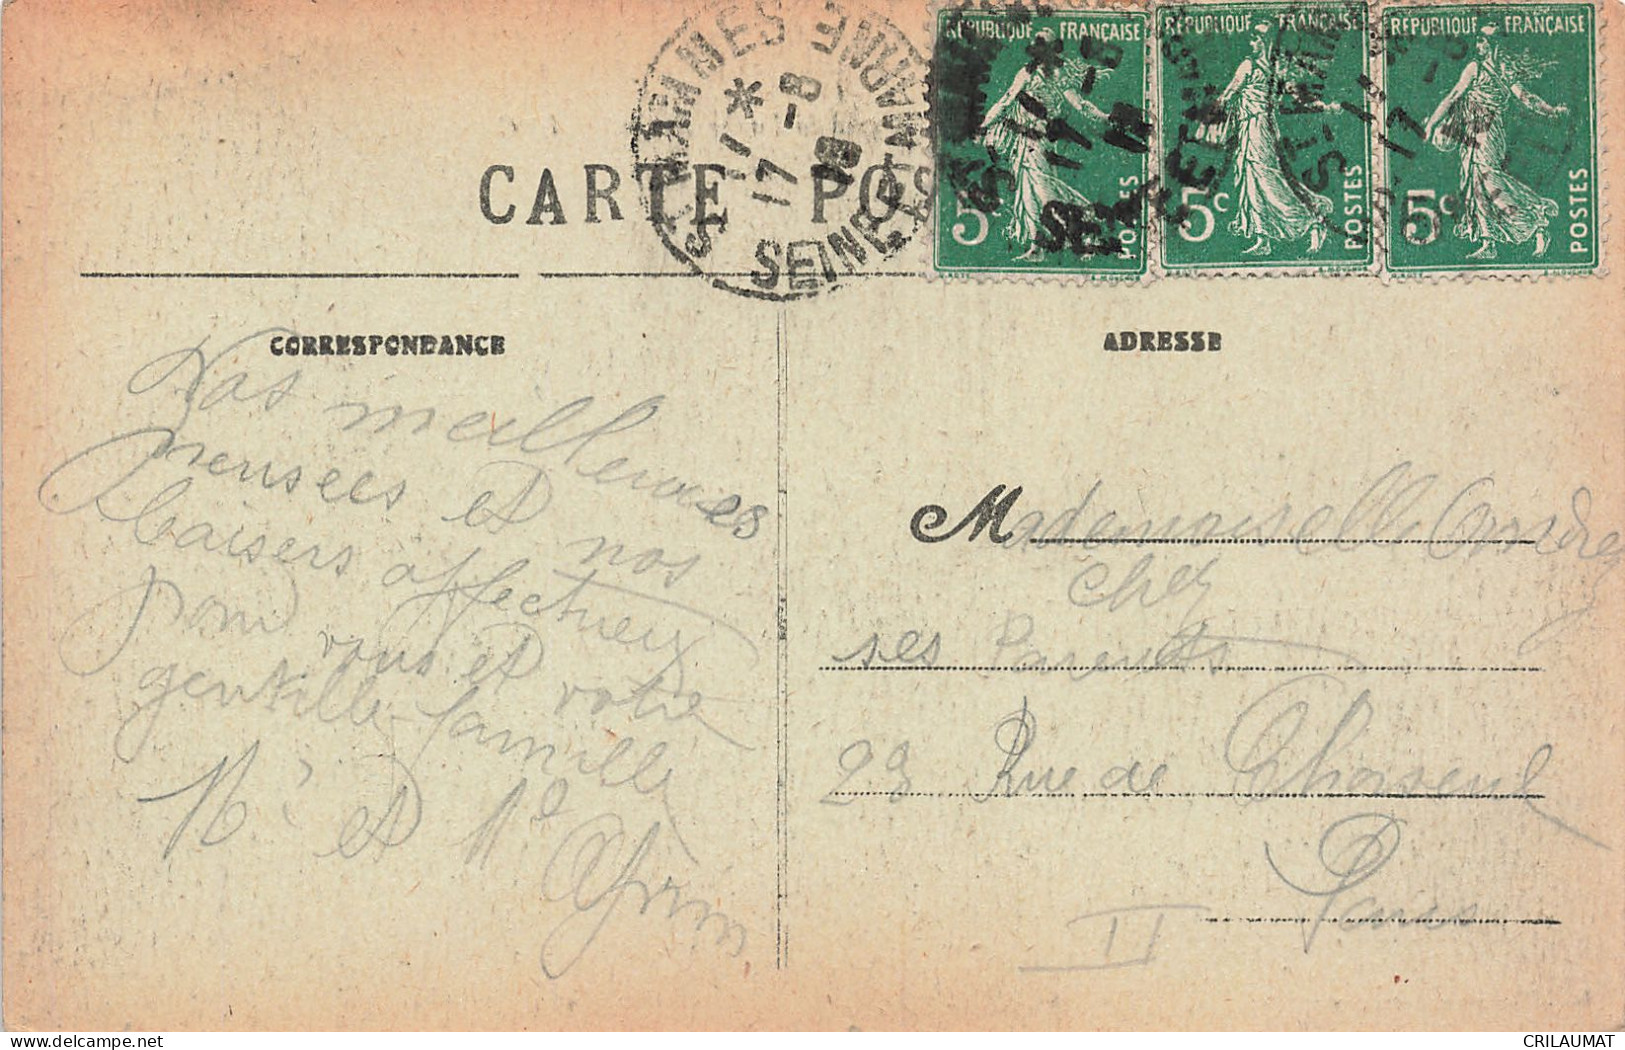 CARTE PO
ST MAMMES
11 *
17 -8
18
SEINE ET MARNE
RÉPUBLIQUE FRANÇAISE
5c
POSTES
RÉPUBLIQUE FRANÇAISE
5c
POSTES
RÉPUBLIQUE FRANÇAISE
5c
POSTES
CORRESPONDANCE
Nos meilleures
pensées et nos
baisers affectueux
pour vous et votre
gentille famille
Mr et Me
ADRESSE
Mademoiselle Andrée
chez
ses Parents
23 Rue de Choiseul
Paris
II
CRILAUMAT